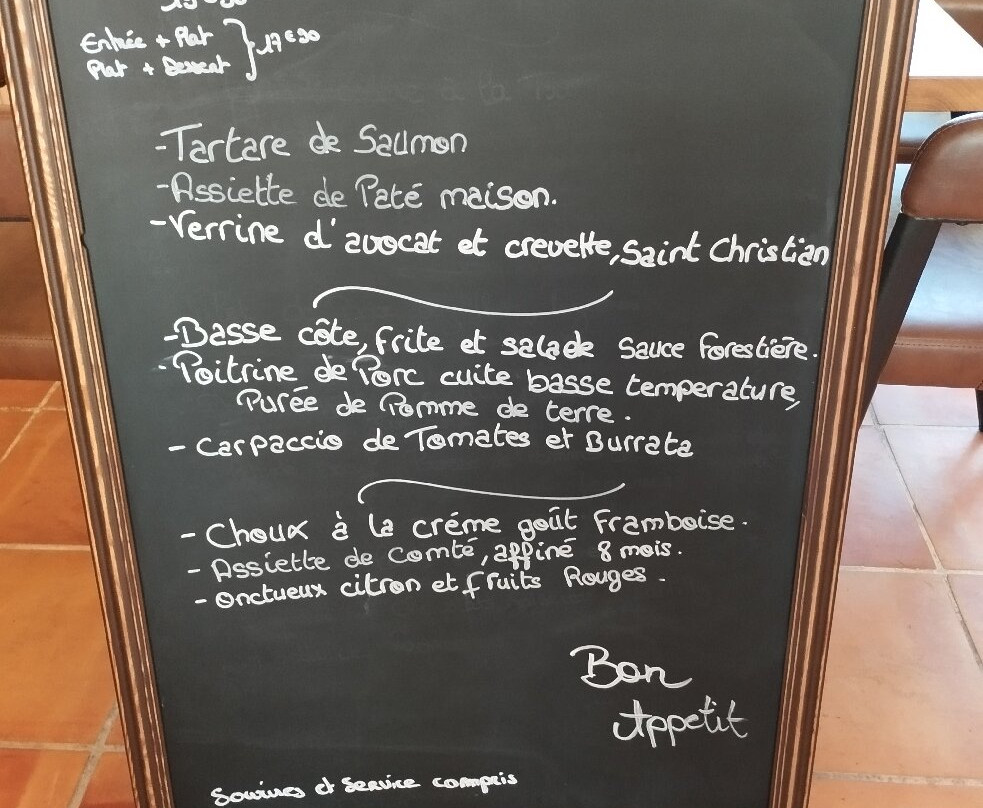 Entrée + Plat
Plat + Dessert } 17€90
- Tartare de Saumon
- Assiette de Paté maison.
- Verrine d'avocat et crevette, Saint Christian
- Basse côte, frite et salade sauce Forestière.
- Poitrine de Porc cuite basse temperature,
Purée de Pomme de terre.
- Carpaccio de Tomates et Burrata
- Choux à la créme goût Framboise.
- Assiette de Comté, affiné 8 mois.
- Onctueux citron et fruits Rouges.
Bon
Appetit
Sourires et Service compris